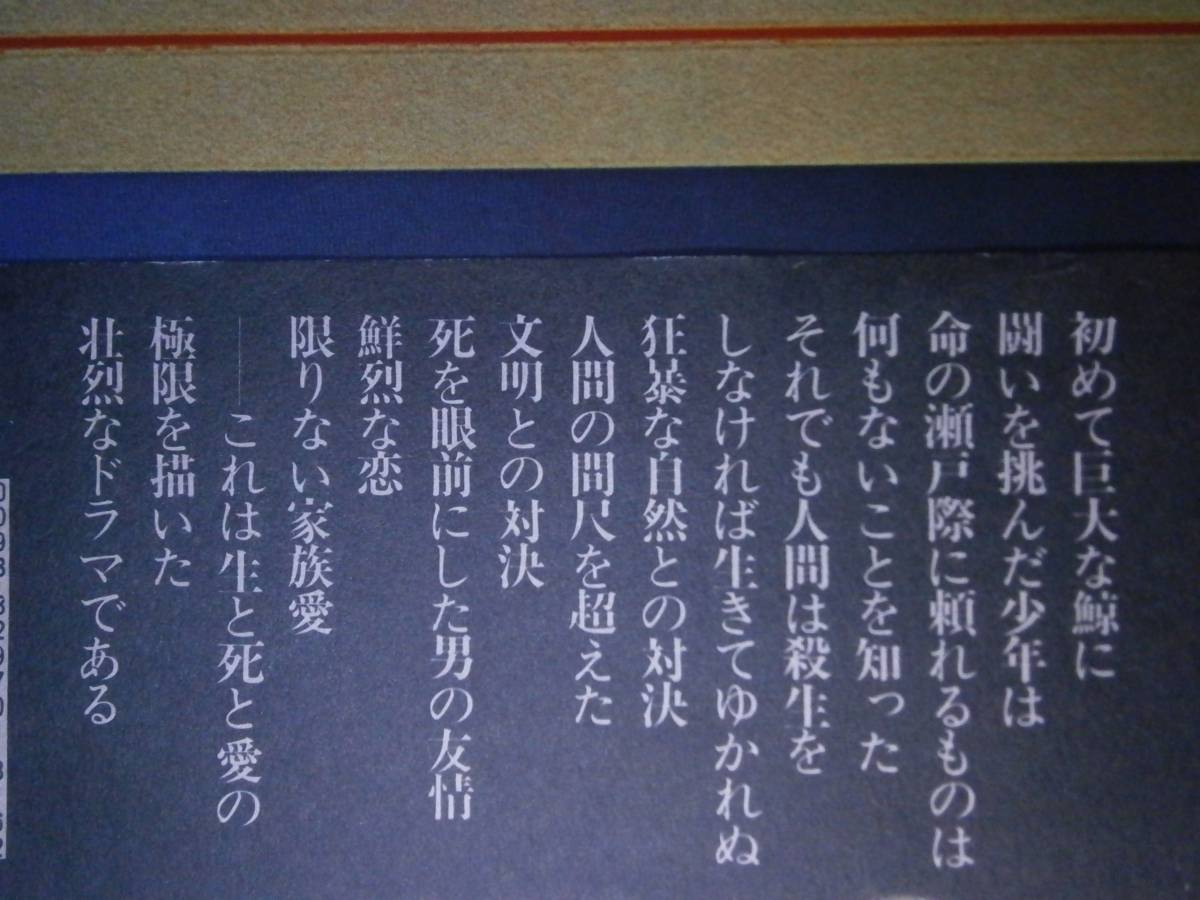 初めて巨大な鯨に
闘いを挑んだ少年は
命の瀬戸際に頼れるものは
何もないことを知った
それでも人間は殺生を
しなければ生きてゆかれぬ
狂暴な自然との対決
人間の間尺を超えた
文明との対決
死を眼前にした男の友情
鮮烈な恋
限りない家族愛
――これは生と死と愛の
極限を描いた
壮烈なドラマである